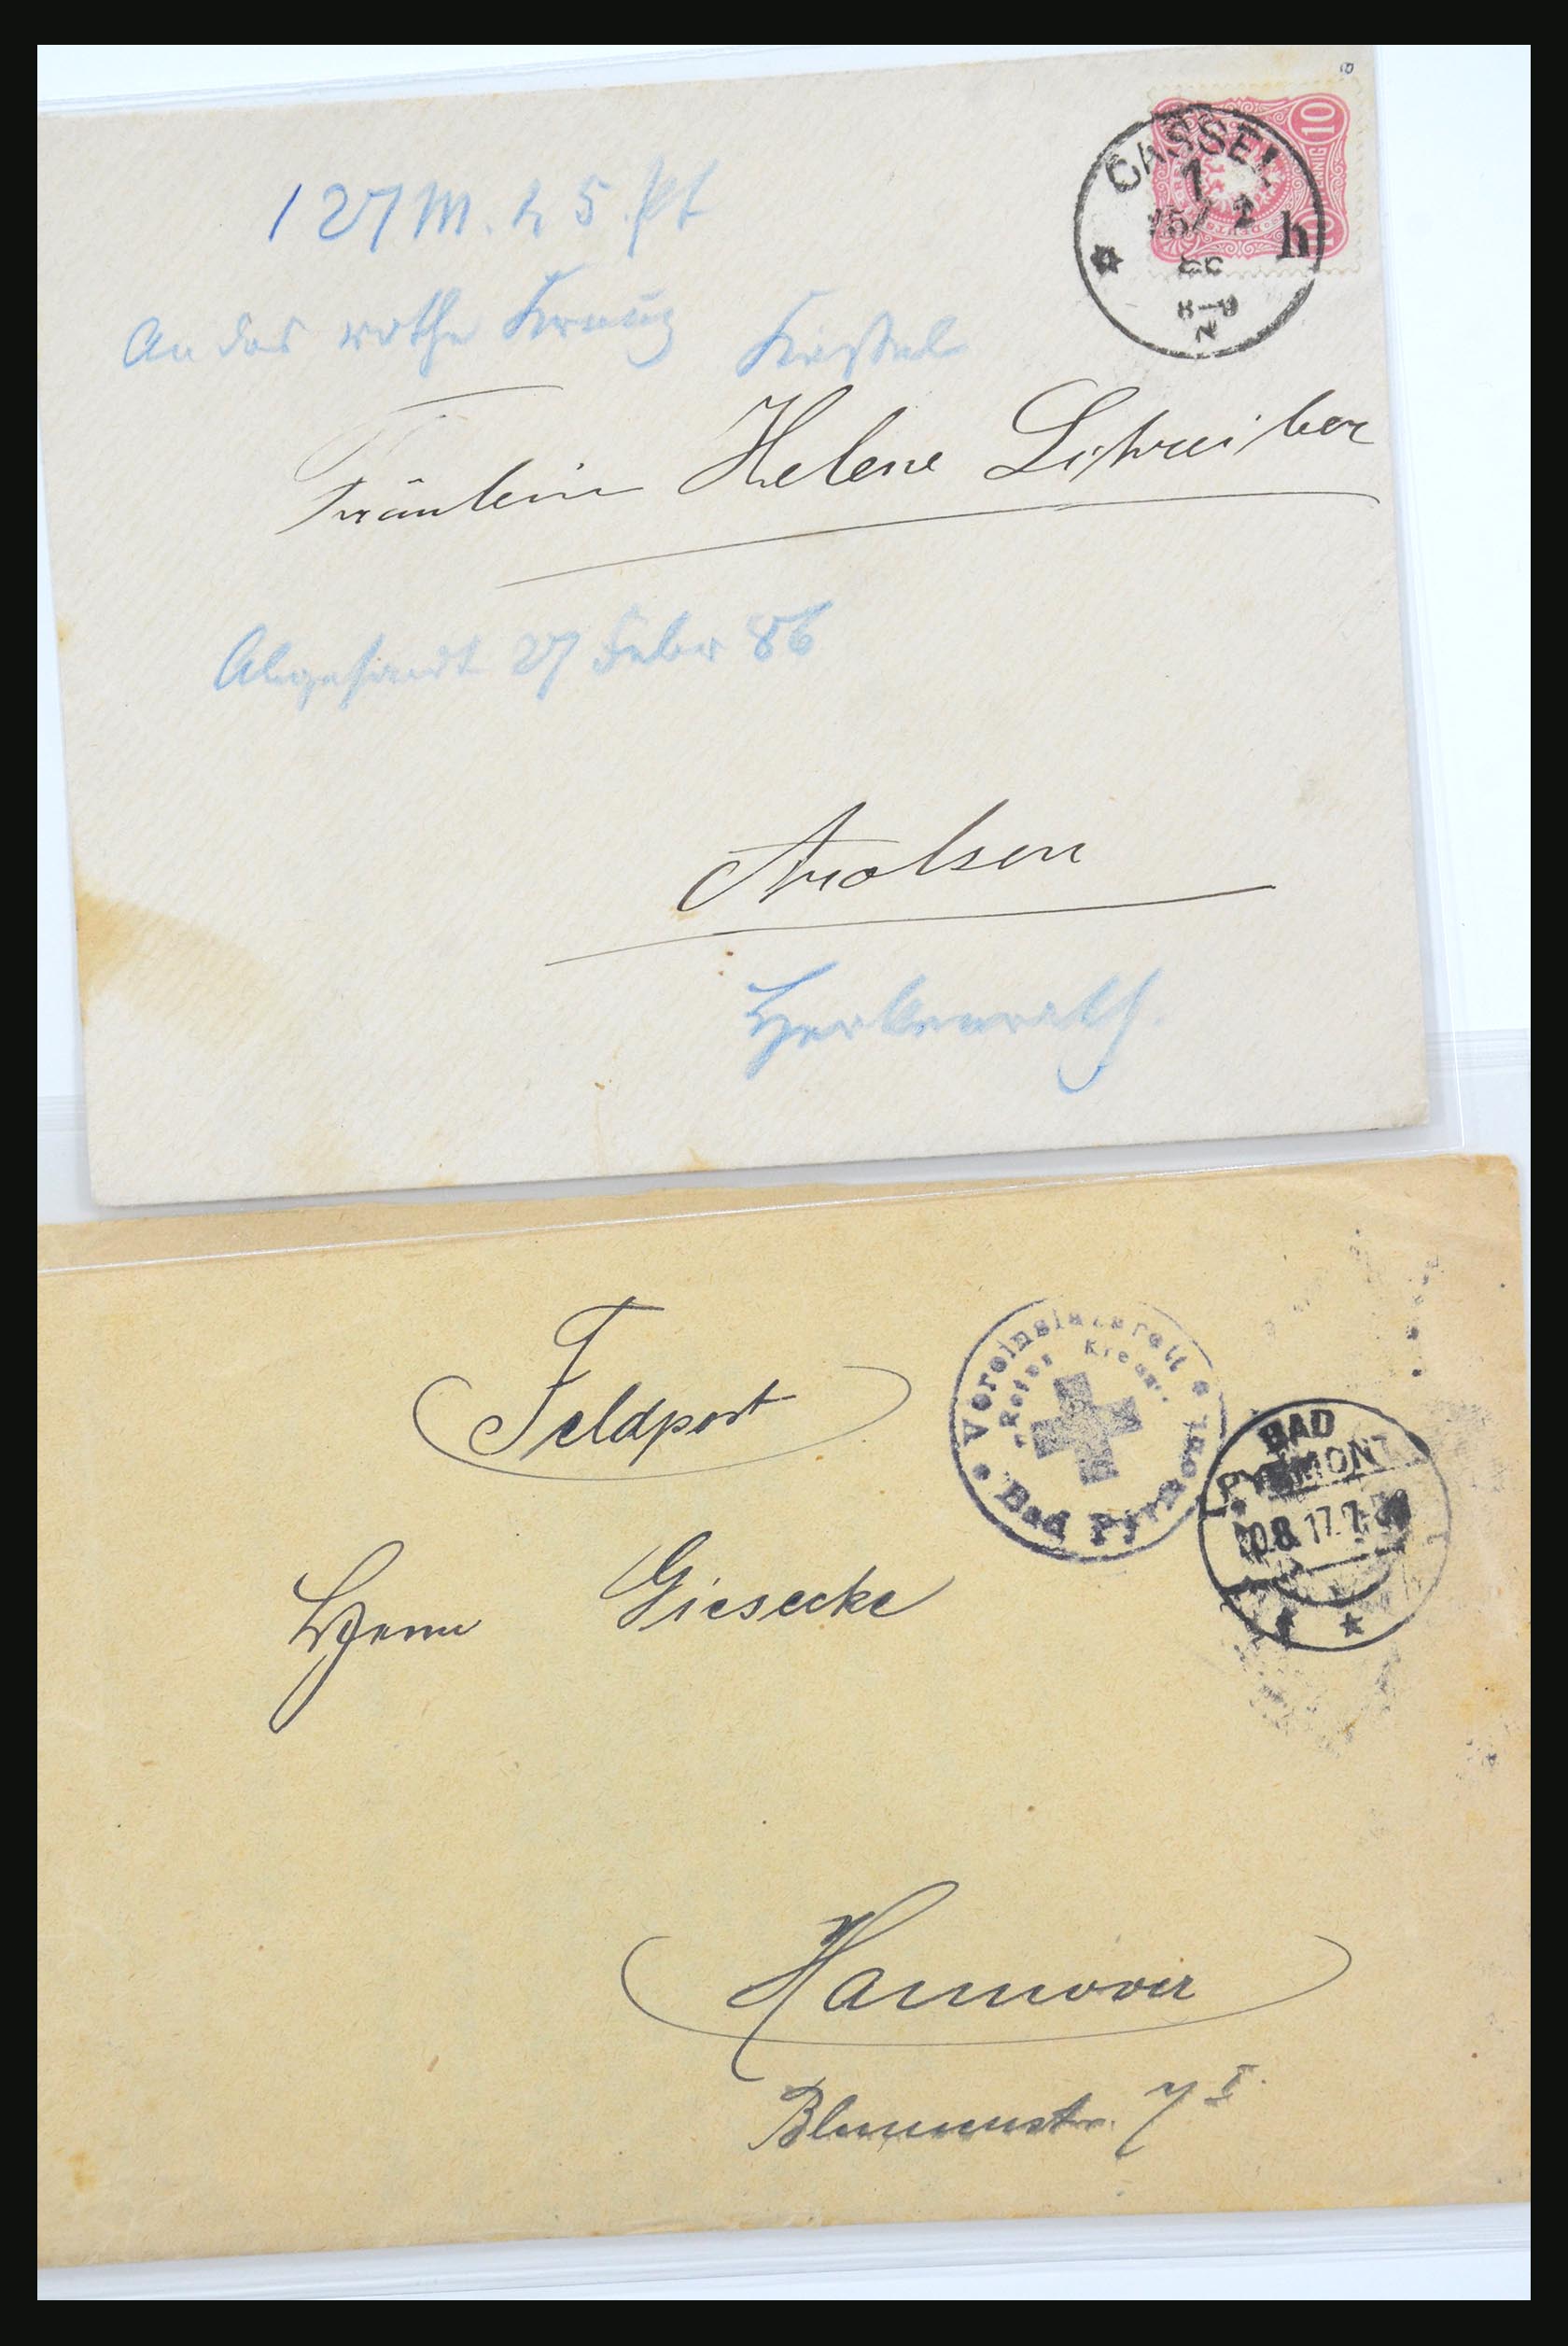 10
PFENNIG
CASSEL
1
25/2
86
8-9
N
h
127 M. 25 Pf
An das rothe Kreuz Kassel
Fräulein Helene Schreiber
Abgesandt 27 Febr 86
Arolsen
Herbenrath.
Feldpost
Vereinslazarett
"Rotes Kreuz"
Bad Pyrmont
BAD
PYRMONT
8.17.
Herrn Giesecke
Hannover
Blumenstr. 7 I.